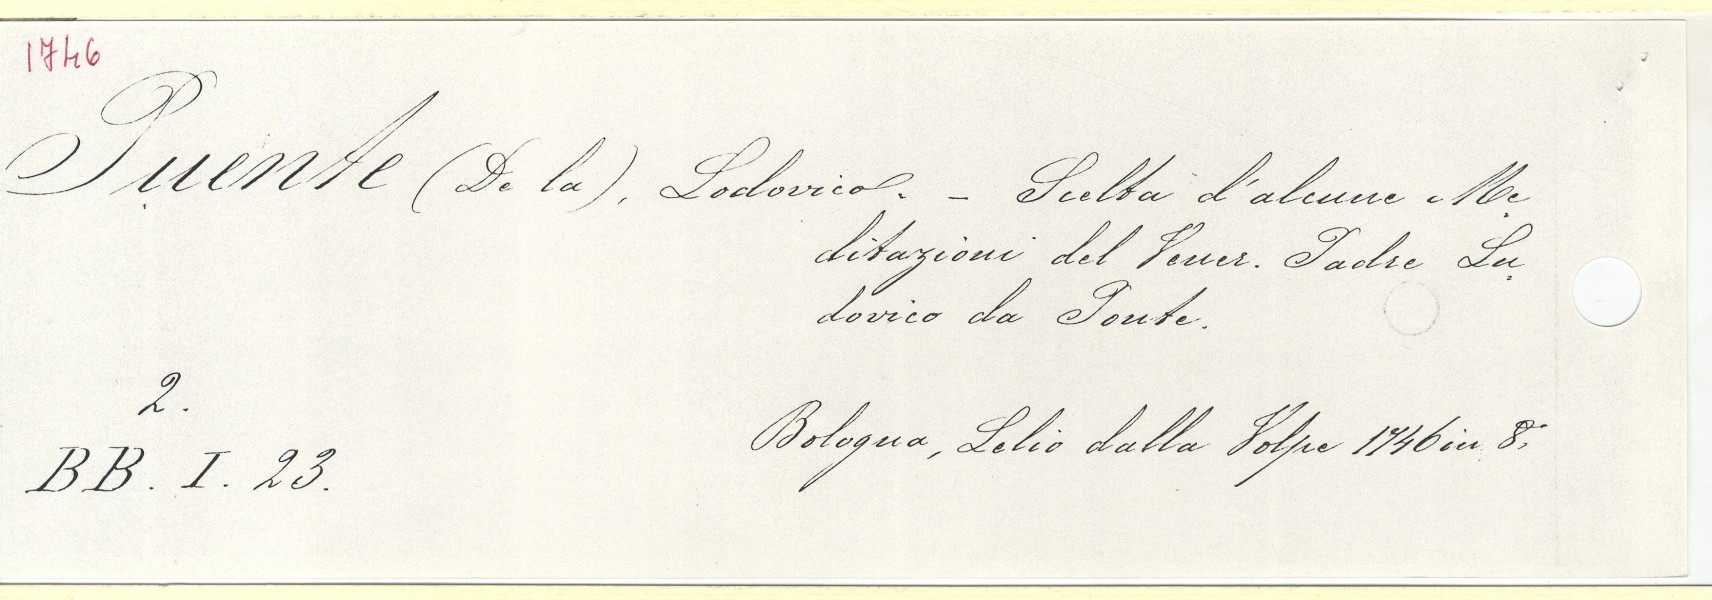 1746
Puente (De la), Lodovico. - Scelta d'alcune Me
ditazioni del Vener. Padre Lu
dovico da Ponte.
2.
BB. I. 23.
Bologna, Lelio dalla Volpe 1746 in 8°.